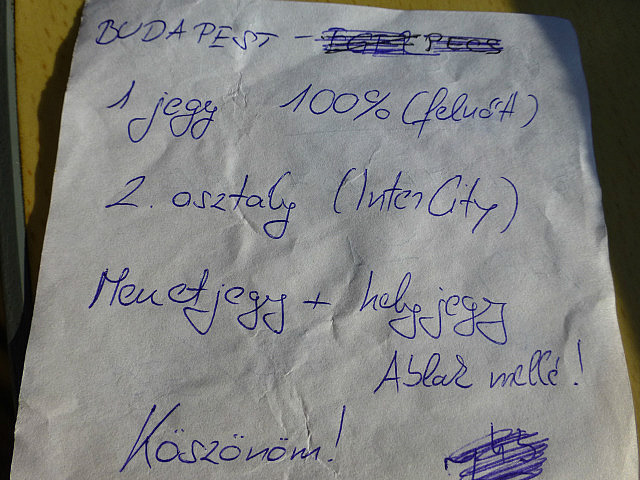 BUDAPEST -
1 jegy 100% (felnőtt)
2. osztály (InterCity)
Menetjegy + helyjegy
Ablak mellé!
Köszönöm!